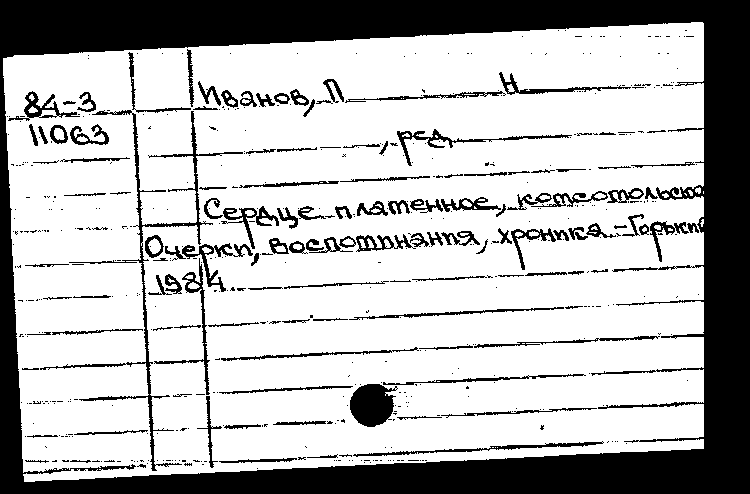 84-3
Иванов, П Н
11063
, ред.
Сердце пламенное, комсомольско
Очерки, воспоминания, хроника.-Горький
1984.